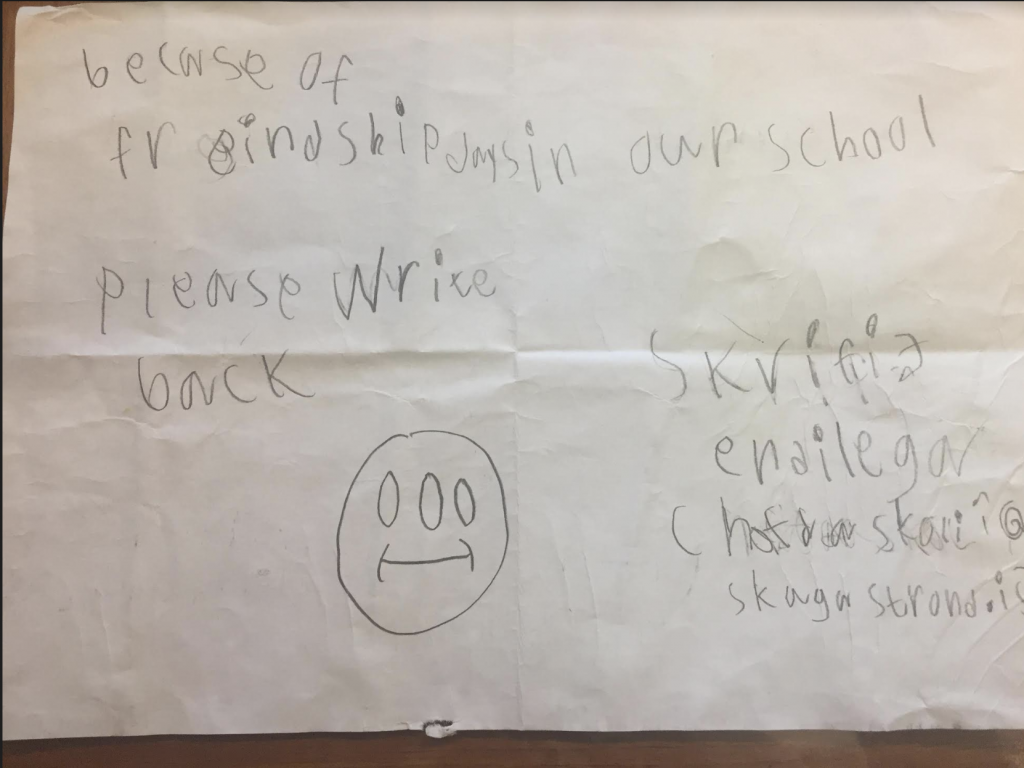 becase of
freindshipdaysin our school
please write
back
skrifið
endilegar
skagastrond.is